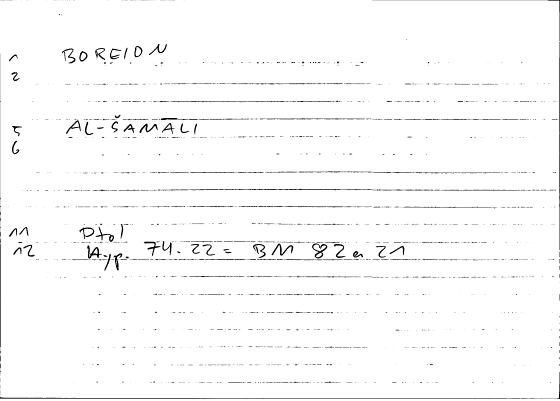 1 BOREION
2
5 AL-ŠAMĀLI
6
11 Ptol
12 Hyp. 74.22 = BM 82a 21